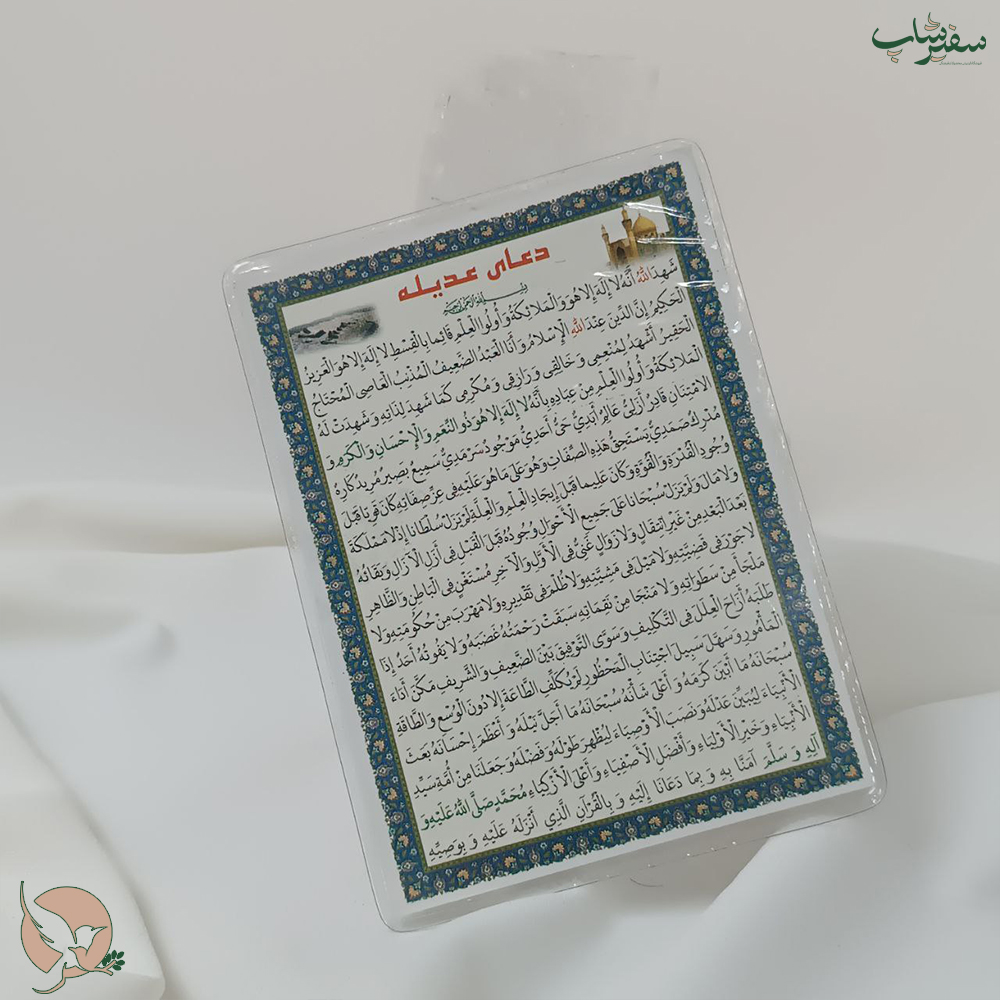 سفیر شاپ
دعای عدیله
بِسْمِ اللهِ الرَّحْمنِ الرَّحیمِ
شَهِدَ اللهُ أَنَّهُ لا إِلهَ إِلا هُوَ وَ الْمَلائِكَةُ وَ أُولُوا الْعِلْمِ قَائِما بِالْقِسْطِ لا إِلهَ إِلا هُوَ الْعَزِيزُ
الْحَكِيمُ إِنَّ الدِّينَ عِنْدَ اللهِ الْإِسْلامُ وَ أَنَا الْعَبْدُ الضَّعِيفُ الْمُذْنِبُ الْعَاصِي الْمُحْتَاجُ
الْحَقِيرُ أَشْهَدُ لِمُنْعِمِي وَ خَالِقِي وَ رَازِقِي وَ مُكْرِمِي كَمَا شَهِدَ لِذَاتِهِ وَ شَهِدَتْ لَهُ
الْمَلائِكَةُ وَ أُولُوا الْعِلْمِ مِنْ عِبَادِهِ بِأَنَّهُ لا إِلهَ إِلا هُوَ ذُو النِّعَمِ وَ الْإِحْسَانِ وَ الْكَرَمِ وَ
الامْتِنَانِ قَادِرٌ أَزَلِيٌّ عَالِمٌ أَبَدِيٌّ حَيٌّ أَحَدِيٌّ مَوْجُودٌ سَرْمَدِيٌّ سَمِيعٌ بَصِيرٌ مُرِيدٌ كَارِهٌ
مُدْرِكٌ صَمَدِيٌّ يَسْتَحِقُّ هَذِهِ الصِّفَاتِ وَ هُوَ عَلَى مَا هُوَ عَلَيْهِ فِي عِزِّ صِفَاتِهِ كَانَ قَوِيا قَبْلَ
وُجُودِ الْقُدْرَةِ وَ الْقُوَّةِ وَ كَانَ عَلِيما قَبْلَ إِيجَادِ الْعِلْمِ وَ الْعِلَّةِ لَمْ يَزَلْ سُلْطَانا إِذْ لا مَمْلَكَةَ
وَ لا مَالَ وَ لَمْ يَزَلْ سُبْحَانا عَلَى جَمِيعِ الْأَحْوَالِ وُجُودُهُ قَبْلَ الْقَبْلِ فِي أَزَلِ الْآزَالِ وَ بَقَائُهُ
بَعْدَ الْبَعْدِ مِنْ غَيْرِ انْتِقَالٍ وَ لا زَوَالٍ غَنِيٌّ فِي الْأَوَّلِ وَ الْآخِرِ مُسْتَغْنٍ فِي الْبَاطِنِ وَ الظَّاهِرِ
لا جَوْرَ فِي قَضِيَّتِهِ وَ لا مَيْلَ فِي مَشِيَّتِهِ وَ لا ظُلْمَ فِي تَقْدِيرِهِ وَ لا مَهْرَبَ مِنْ حُكُومَتِهِ وَ لا
مَلْجَأَ مِنْ سَطَوَاتِهِ وَ لا مَنْجَا مِنْ نَقِمَاتِهِ سَبَقَتْ رَحْمَتُهُ غَضَبَهُ وَ لا يَفُوتُهُ أَحَدٌ إِذَا
طَلَبَهُ أَزَاحَ الْعِلَلَ فِي التَّكْلِيفِ وَ سَوَّى التَّوْفِيقَ بَيْنَ الضَّعِيفِ وَ الشَّرِيفِ مَكَّنَ أَدَاءَ
الْمَأْمُورِ وَ سَهَّلَ سَبِيلَ اجْتِنَابِ الْمَحْظُورِ لَمْ يُكَلِّفِ الطَّاعَةَ إِلا دُونَ الْوُسْعِ وَ الطَّاقَةِ
سُبْحَانَهُ مَا أَبْيَنَ كَرَمَهُ وَ أَعْلَى شَأْنَهُ سُبْحَانَهُ مَا أَجَلَّ نَيْلَهُ وَ أَعْظَمَ إِحْسَانَهُ بَعَثَ
الْأَنْبِيَاءَ لِيُبَيِّنَ عَدْلَهُ وَ نَصَبَ الْأَوْصِيَاءَ لِيُظْهِرَ طَوْلَهُ وَ فَضْلَهُ وَ جَعَلَنَا مِنْ أُمَّةِ سَيِّدِ
الْأَنْبِيَاءِ وَ خَيْرِ الْأَوْلِيَاءِ وَ أَفْضَلِ الْأَصْفِيَاءِ وَ أَعْلَى الْأَزْكِيَاءِ مُحَمَّدٍ صَلَّى اللهُ عَلَيْهِ وَ
آلِهِ وَ سَلَّمَ آمَنَّا بِهِ وَ بِمَا دَعَانَا إِلَيْهِ وَ بِالْقُرْآنِ الَّذِي أَنْزَلَهُ عَلَيْهِ وَ بِوَصِيِّهِ